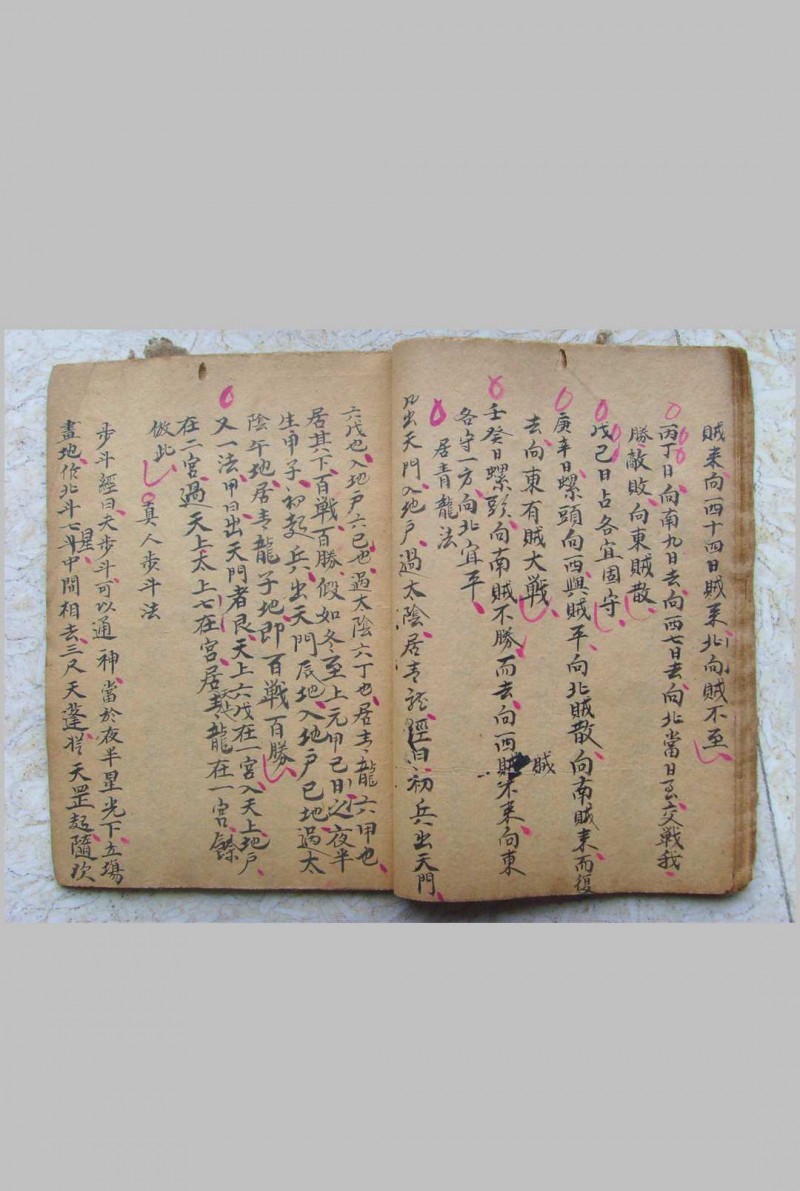 賊来向西十四日賊来北向賊不至
丙丁日向南九日去向西七日去向北當日至交戦我
勝敵敗向東賊散
戊己日占各宜固守
庚辛日螺頭向西與賊平向北賊散向南賊来而復
去向東有賊大戦
壬癸日螺頭向南賊不勝而去向西賊不来向東
賊
各守一方向北宜平
居青龍法
凡出天門入地户過太陰居青龍經曰初兵出天門
六戊也入地户六己也過太陰六丁也居青龍六甲也
居其下百戦百勝假如冬至上元甲己日之夜半
生甲子初起兵出天門辰地入地户巳地過太
陰午地居青龍子地即百戦百勝
又一法甲日出天門者艮天上六戊在一宮入天上地户
在二宮過天上太上七在宮居天上青龍在一宮餘
倣此
真人步斗法
步斗經曰夫步斗可以通神當於夜半星光下立場
畫地作北斗七星斗中間相去三尺天蓬天罡起隨次